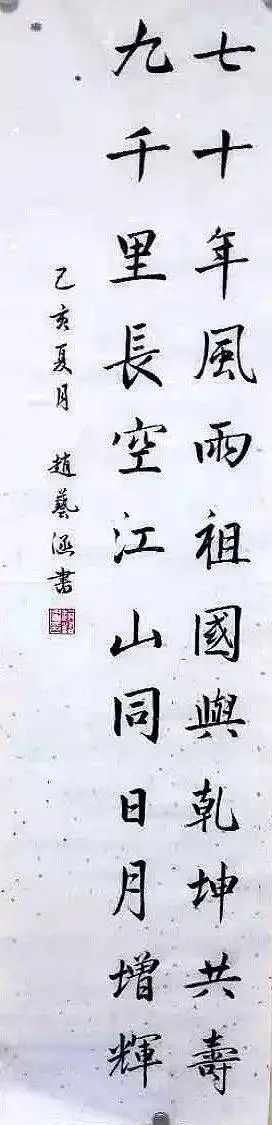 七十年風雨祖國與乾坤共壽
九千里長空江山同日月增輝
己亥夏月 趙藝涵書